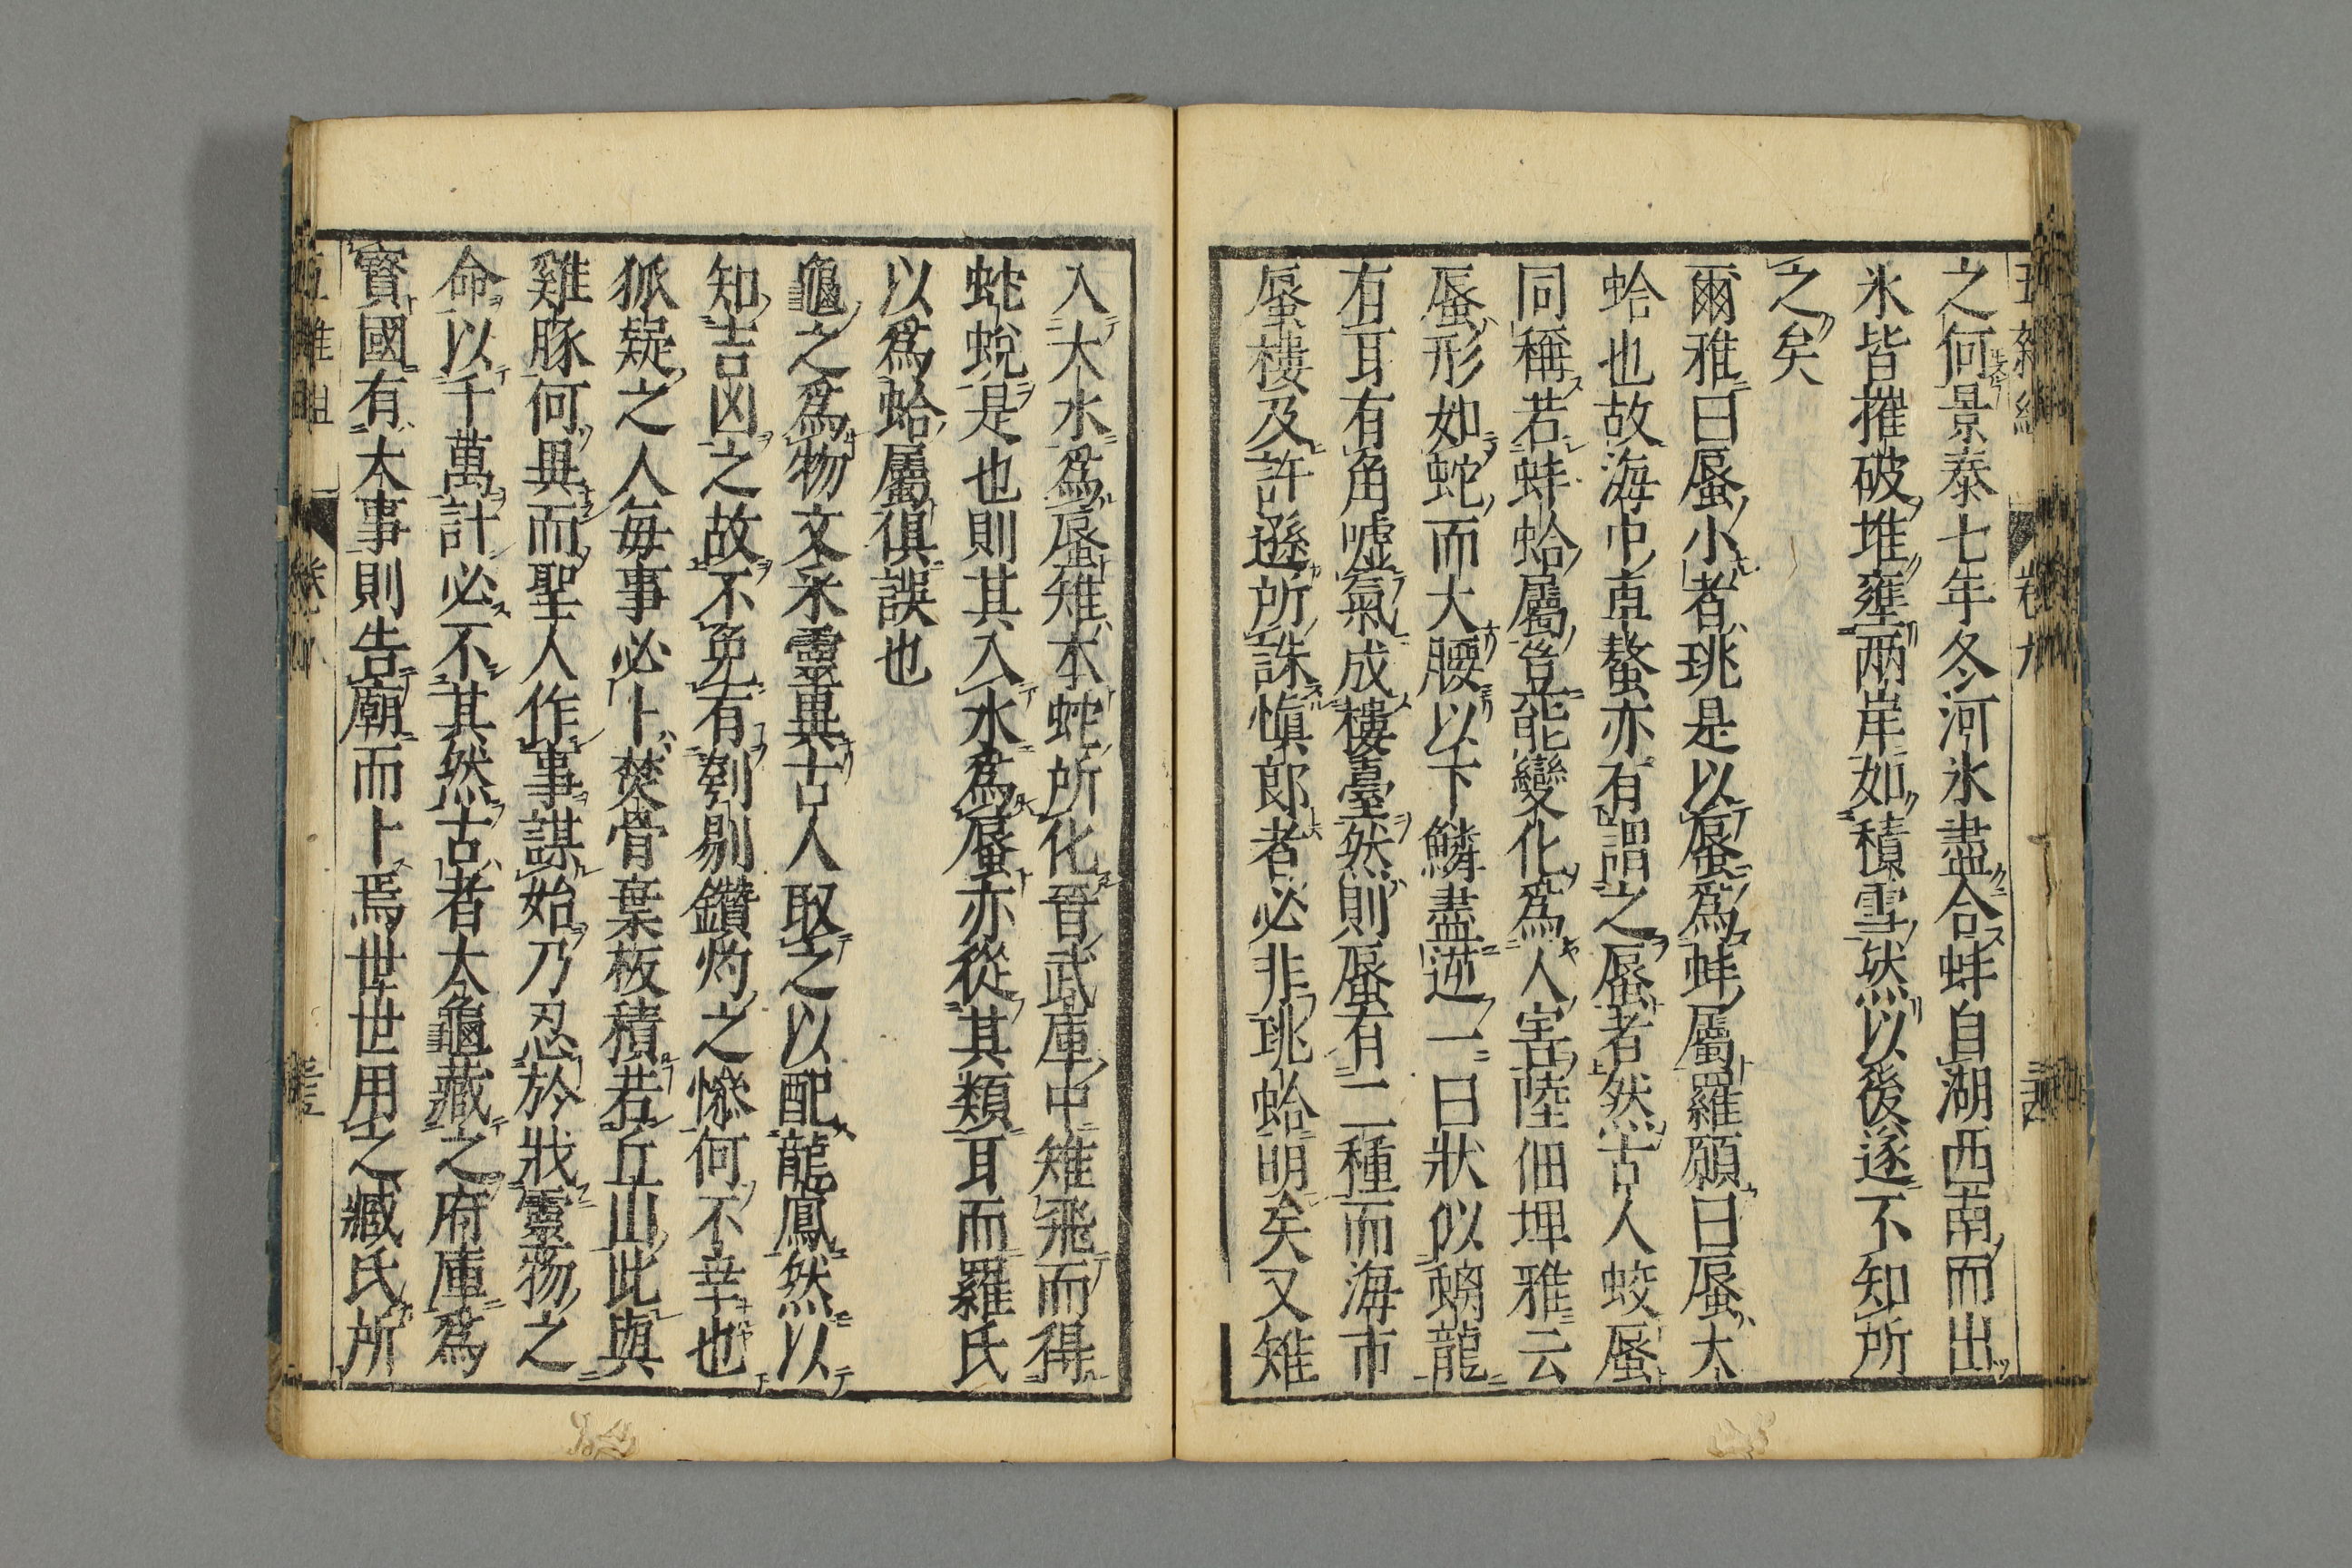 之何景泰七年冬河氷盡合蚌自湖西南而出
氷皆摧破堆壅兩岸如積雪然以後遂不知所
之矣
爾雅曰蜃小者珧是以蜃爲蚌屬羅願曰蜃大
蛤也故海中車螯亦有謂之蜃者然古人蛟蜃
同稱若蚌蛤屬豈能變化爲人害陸佃埤雅云
蜃形如蛇而大腰以下鱗盡逆一曰狀似螭龍
有耳有角噓氣成樓臺然則蜃有二種而海市
蜃樓及許遜所誅愼郎者必非珧蛤明矣又雉
入大水爲蜃雉本蛇所化晉武庫中雉飛而得
蛇蛻是也則其入水爲蜃亦從其類耳而羅氏
以爲蛤屬俱誤也
龜之爲物文采靈異古人取之以配龍鳳然以
知吉凶之故不免有刳剔鑽灼之慘何不幸也
狐疑之人毎事必卜焚骨棄板積若丘山此與
雞豚何異而聖人作事謀始乃忍於戕靈物之
命以千萬計必不其然古者大龜藏之府庫爲
寳國有大事則告廟而卜焉世世用之臧氏所